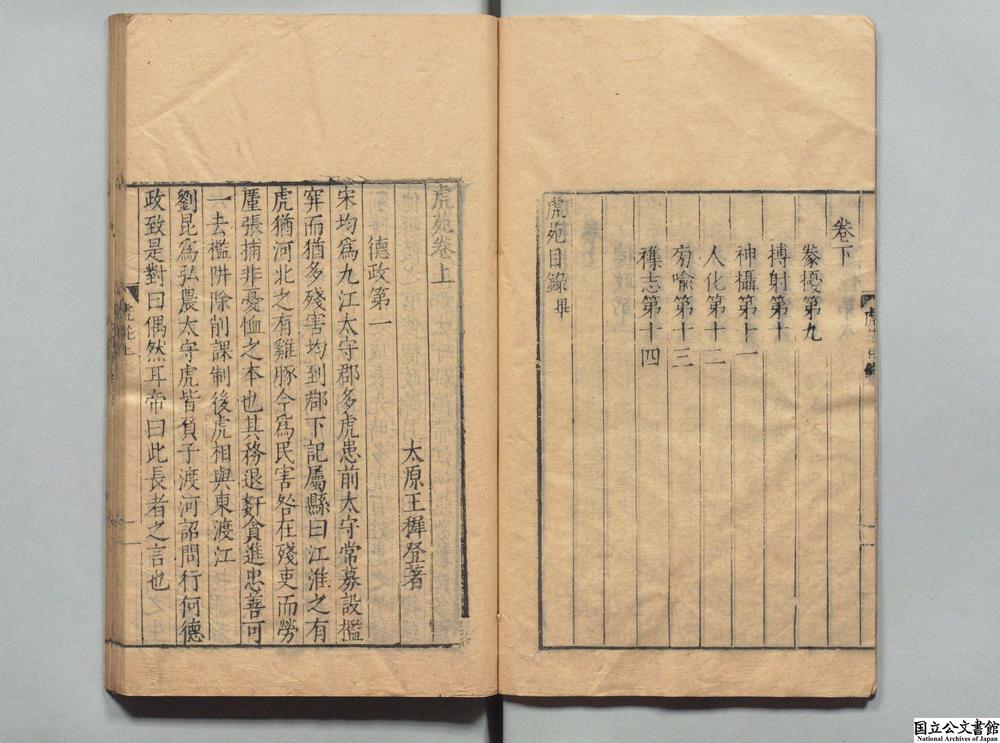 卷下
豢擾第九
搏射第十
神攝第十一
人化第十二
旁喻第十三
襍志第十四
虎苑目錄畢
虎苑卷上
太原王穉登著
德政第一
宋均爲九江太守郡多虎患前太守常募設檻
穽而猶多殘害均到郡下記屬縣曰江淮之有
虎猶河北之有雞豚今爲民害咎在殘吏而勞
厪張捕非憂恤之本也其務退奸貪進忠善可
一去檻阱除削課制後虎相與東渡江
劉昆爲弘農太守虎皆負子渡河詔問行何德
政致是對曰偶然耳帝曰此長者之言也
虎苑上
国立公文書館
National Archives of Japan